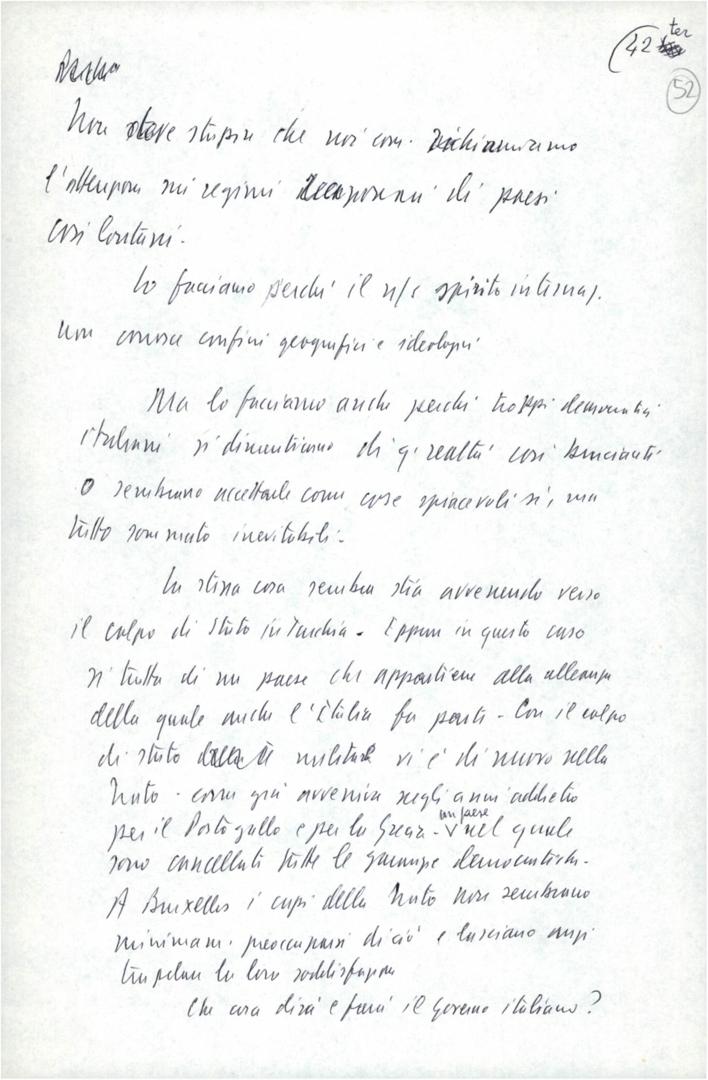 42 ter
52
Non deve stupire che noi com. richiamiamo
l'attenzione sui regimi di paesi
così lontani.
Lo facciamo perché il ns/ spirito internaz.
non conosce confini geografici e ideologici
Ma lo facciamo anche perché troppi democratici
italiani si dimenticano di q. realtà così brucianti
o sembrano accettarle come cose spiacevoli sì, ma
tutto sommato inevitabili.
La stessa cosa sembra stia avvenendo verso
il colpo di Stato in Turchia. Eppure in questo caso
si tratta di un paese che appartiene alla alleanza
della quale anche l'Italia fa parte. Con il colpo
di stato militare vi è di nuovo nella
Nato - come già avveniva negli anni addietro
per il Portogallo e per la Grecia - un paese nel quale
sono cancellati tutte le garanzie democratiche.
A Bruxelles i capi della Nato non sembrano
minimam. preoccuparsi di ciò e lasciano anzi
trapelare la loro soddisfazione
Che cosa dirà e farà il Governo italiano?